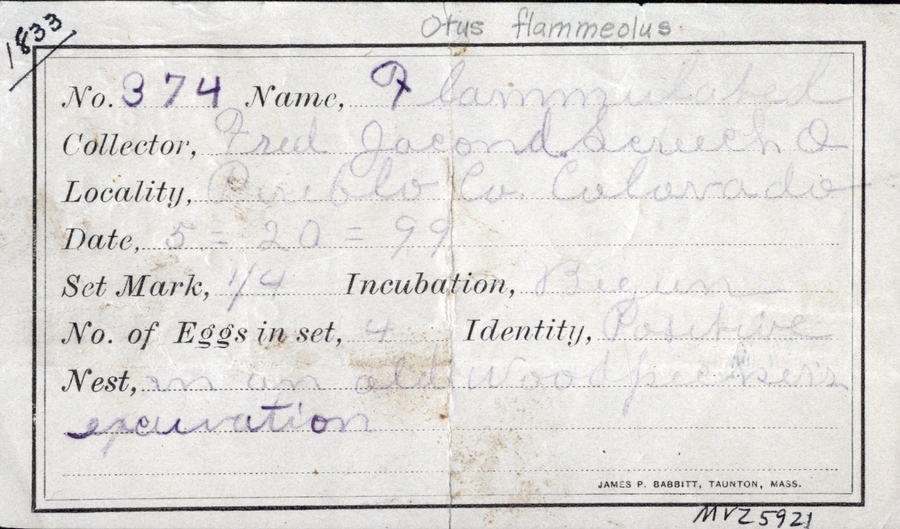 1833
Otus flammeolus
No. 374 Name, Flammulated
Collector, Fred Jacond. Screech O
Locality, Pueblo Co. Colorado
Date, 5 = 20 = 99
Set Mark, 1/4 Incubation, Begun
No. of Eggs in set, 4 Identity, Positive
Nest, in an old Woodpecker's
excavation
JAMES P. BABBITT, TAUNTON, MASS.
MVZ 5921